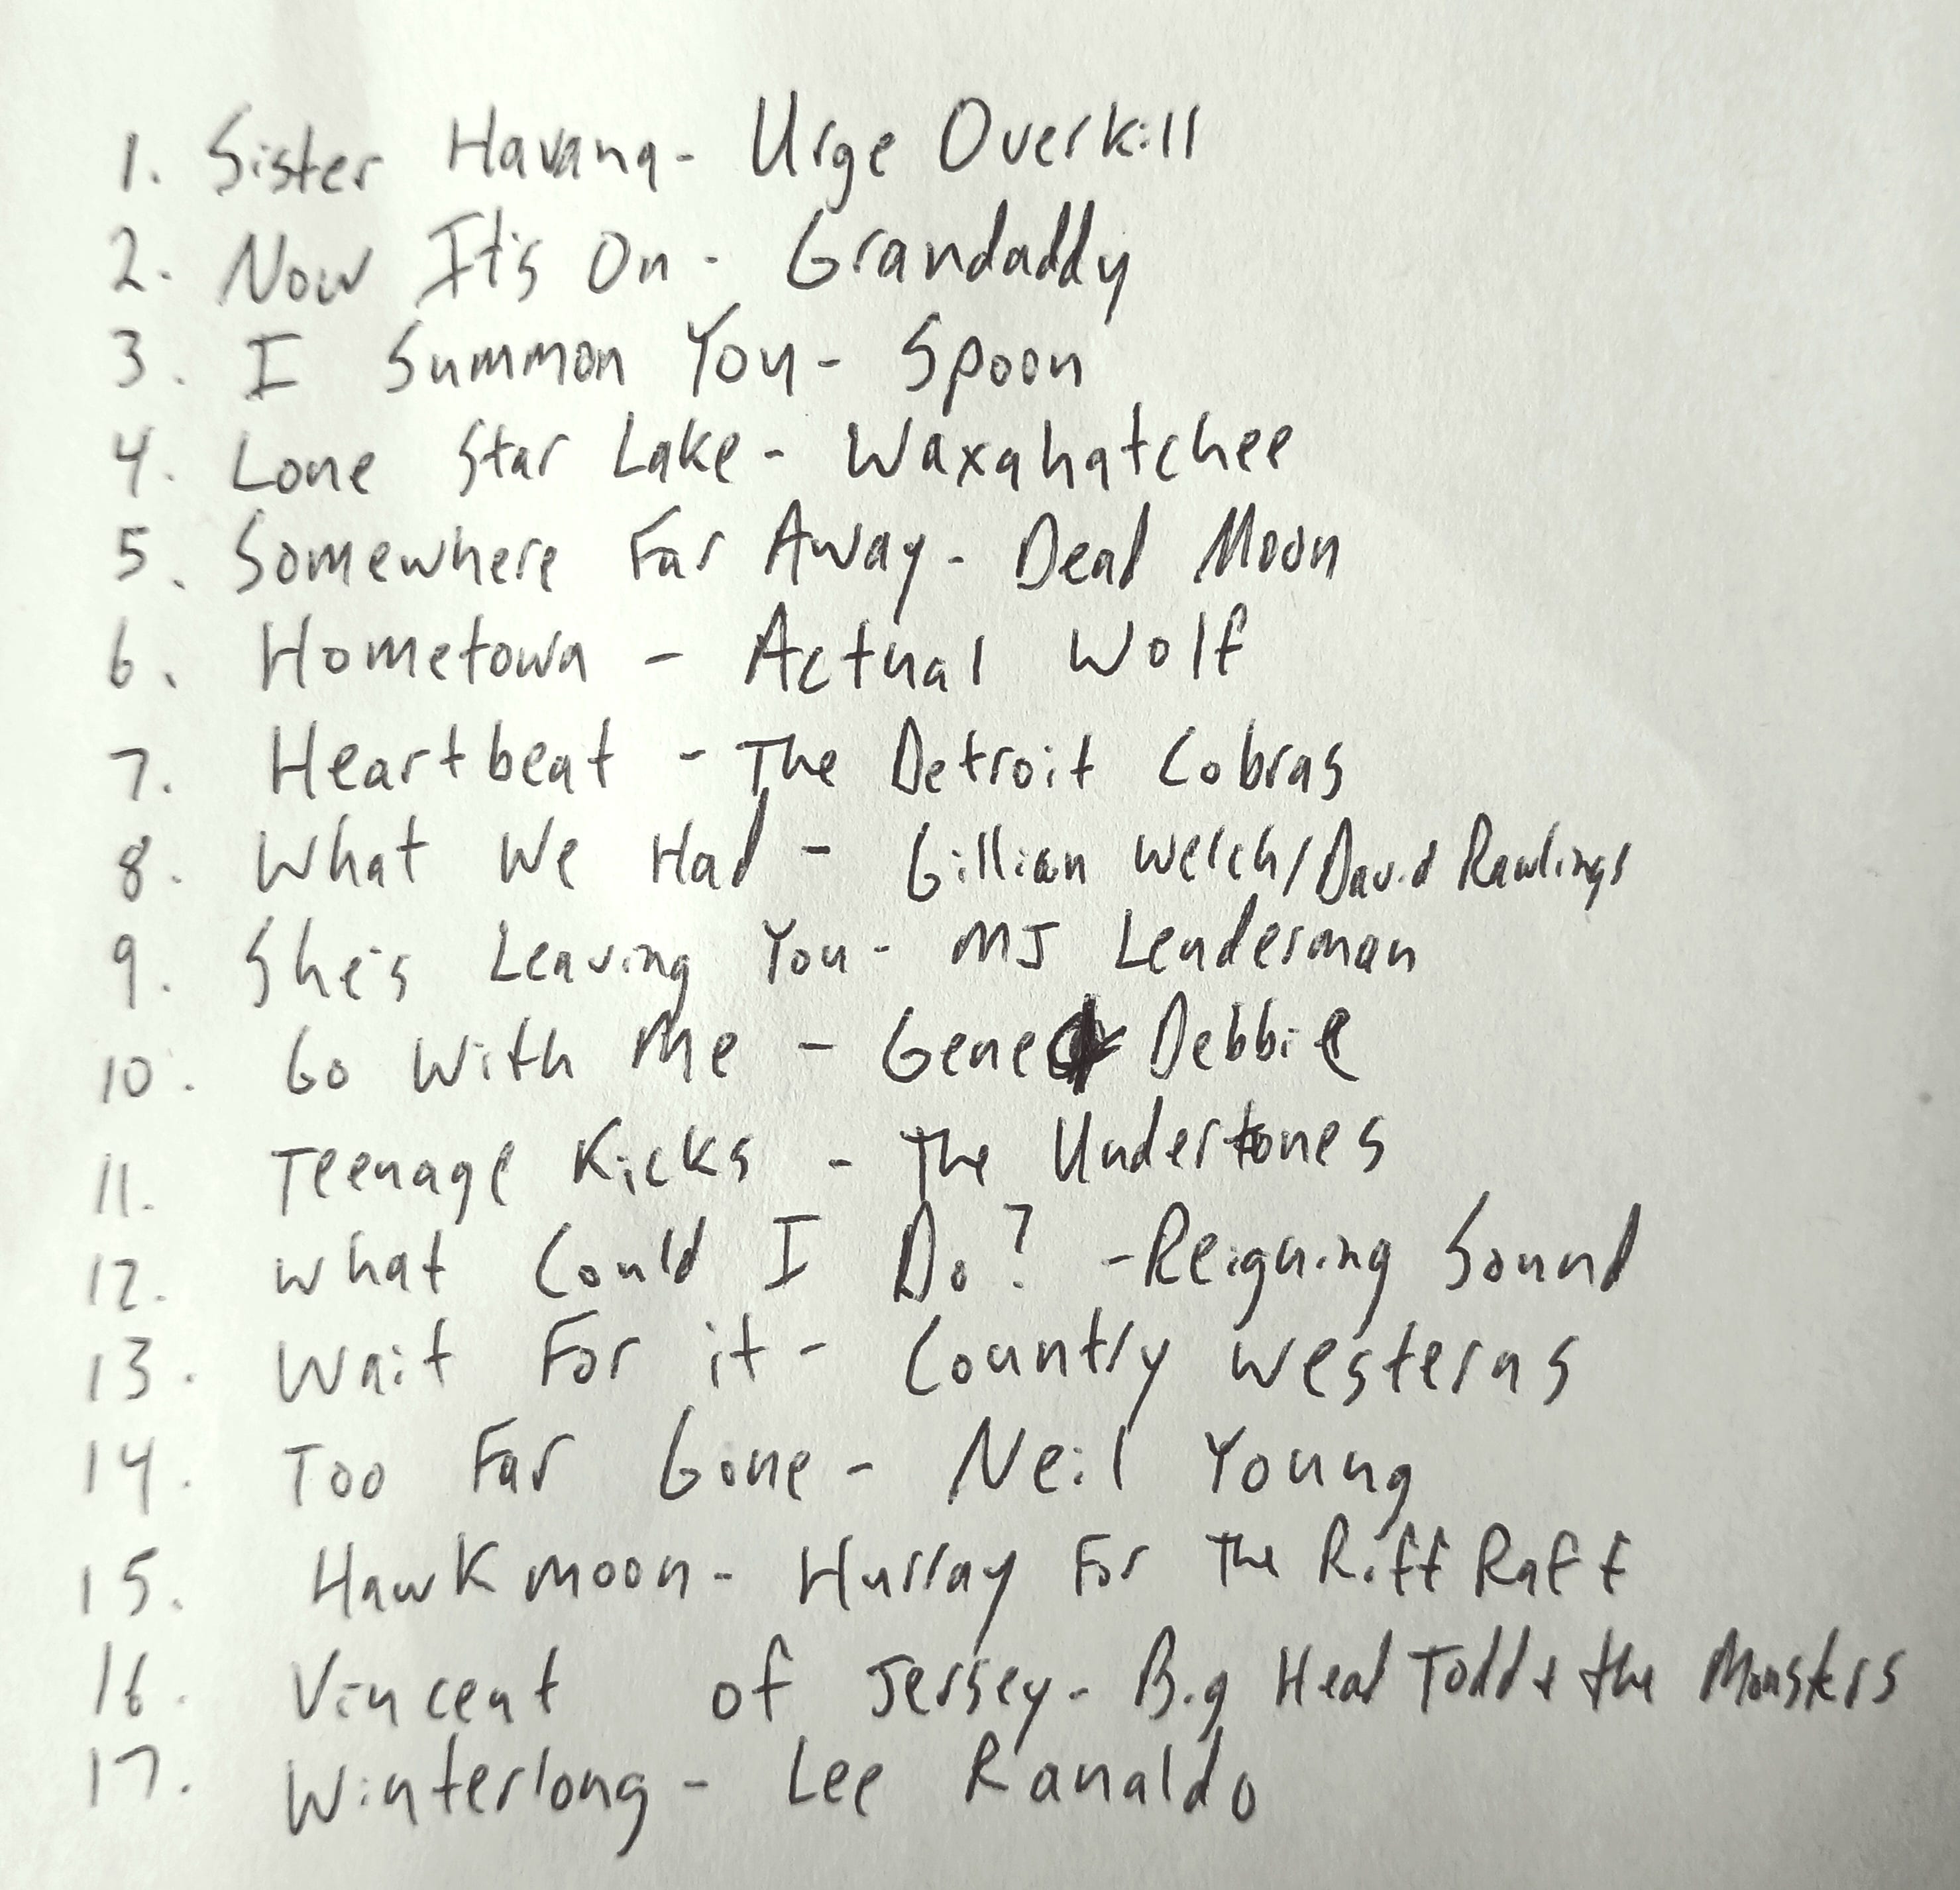 1. Sister Havana - Urge Overkill
2. Now It's On - Grandaddy
3. I Summon You - Spoon
4. Lone Star Lake - Waxahatchee
5. Somewhere Far Away - Dead Moon
6. Hometown - Actual Wolf
7. Heartbeat - The Detroit Cobras
8. What We Had - Gillian Welch/David Rawlings
9. She's Leaving You - MJ Lenderman
10. Go With Me - Gene & Debbie
11. Teenage Kicks - The Undertones
12. What Could I Do? - Reigning Sound
13. Wait For it - Country Westerns
14. Too Far Gone - Neil Young
15. Hawkmoon - Hurray For The Riff Raff
16. Vincent of Jersey - Big Head Todd + the Monsters
17. Winterlong - Lee Ranaldo